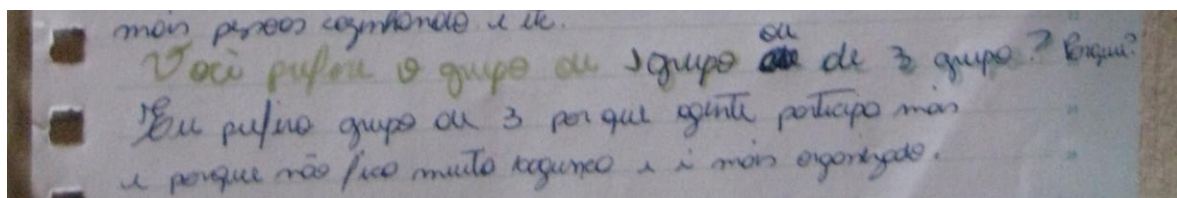 mais pessoas cozinhando e etc.
Você prefere o grupo de 1 grupo ou de 3 grupo? Porque?
Eu prefiro grupo de 3 por que agente participa mais
e porque não fica muito bagunça e é mais organizado.